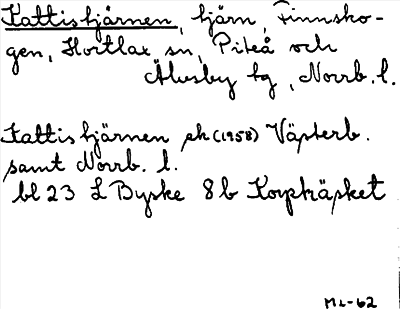 Kattistjärnen, tjärn, Finnsko-
gen, Hortlax sn, Piteå och
Älvsby tg, Norrb. l.
Kattistjärnen ek (1958) Västerb.
samt Norrb. l.
bl 23 L Byske 8b Korpträsket
ML-62